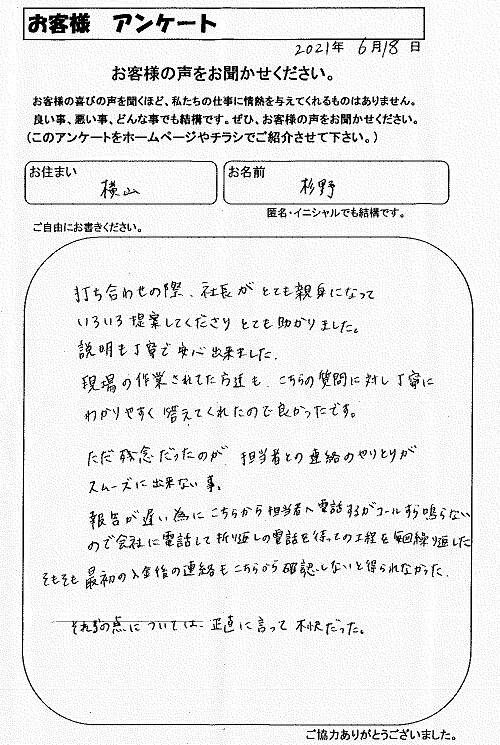 お客様 アンケート
2021年 6月18日
お客様の声をお聞かせください。
お客様の喜びの声を聞くほど、私たちの仕事に情熱を与えてくれるものはありません。
良い事、悪い事、どんな事でも結構です。ぜひ、お客様の声をお聞かせください。
(このアンケートをホームページやチラシでご紹介させて下さい。)
お住まい
横山
お名前
杉野
匿名・イニシャルでも結構です。
ご自由にお書きください。
打ち合わせの際、社長がとても親身になって
いろいろ提案してくださりとても助かりました。
説明も丁寧で安心出来ました。
現場の作業されてた方達も、こちらの質問に対し丁寧に
わかりやすく答えてくれたので良かったです。
ただ残念だったのが、担当者との連絡のやりとりが
スムーズに出来ない事。
報告が遅い為にこちらから担当者へ電話するがコールすら鳴らない
ので会社に電話して折り返しの電話を待っての工程を毎回繰り返した
そもそも最初の入金後の連絡もこちらから確認しないと得られなかった。
それらの点については、正直に言って不快だった。
ご協力ありがとうございました。